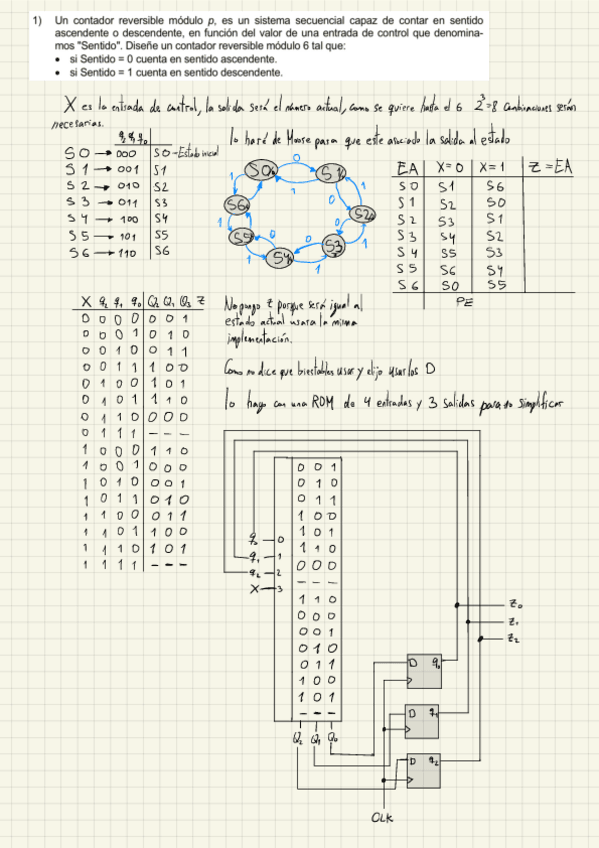 1) Un contador reversible módulo p, es un sistema secuencial capaz de contar en sentido
ascendente o descendente, en función del valor de una entrada de control que denomina-
mos "Sentido". Diseñe un contador reversible módulo 6 tal que:
• si Sentido = 0 cuenta en sentido ascendente.
• si Sentido = 1 cuenta en sentido descendente.
X es la entrada de control, la salida será el número actual, como se quiere hasta el 6 2^3=8 combinaciones serán
necesarias.
q2 q1 q0
S0 → 000 S0 - Estado inicial
S1 → 001 S1
S2 → 010 S2
S3 → 011 S3
S4 → 100 S4
S5 → 101 S5
S6 → 110 S6
lo haré de Moore para que este asociado la salida al estado
S0 0 S1
1 1 0 1
S6 S2
1 0 1
S5 0 0 S3
1 S4 1
EA X=0 X=1 Z=EA
S0 S1 S6
S1 S2 S0
S2 S3 S1
S3 S4 S2
S4 S5 S3
S5 S6 S4
S6 S0 S5
PE
X q2 q1 q0 Q2 Q1 Q0 Z
0 0 0 0 0 0 1
0 0 0 1 0 1 0
0 0 1 0 0 1 1
0 0 1 1 1 0 0
0 1 0 0 1 0 1
0 1 0 1 1 1 0
0 1 1 0 0 0 0
0 1 1 1 - - -
1 0 0 0 1 1 0
1 0 0 1 0 0 0
1 0 1 0 0 0 1
1 0 1 1 0 1 0
1 1 0 0 0 1 1
1 1 0 1 1 0 0
1 1 1 0 1 0 1
1 1 1 1 - - -
No pongo Z porque será igual al
estado actual usara la misma
implementación.
Como no dice que biestables usar y elijo usar los D
lo hago con una ROM de 4 entradas y 3 salidas para no simplificar
0 0 1
0 1 0
0 1 1
1 0 0
1 0 1
1 1 0
0 0 0
- - -
1 1 0
0 0 0
0 0 1
0 1 0
0 1 1
1 0 0
1 0 1
- - -
q0 0
q1 1
q2 2
X 3
Q2 Q1 Q0
Z0
Z1
Z2
D q0
D q1
D q2
CLK